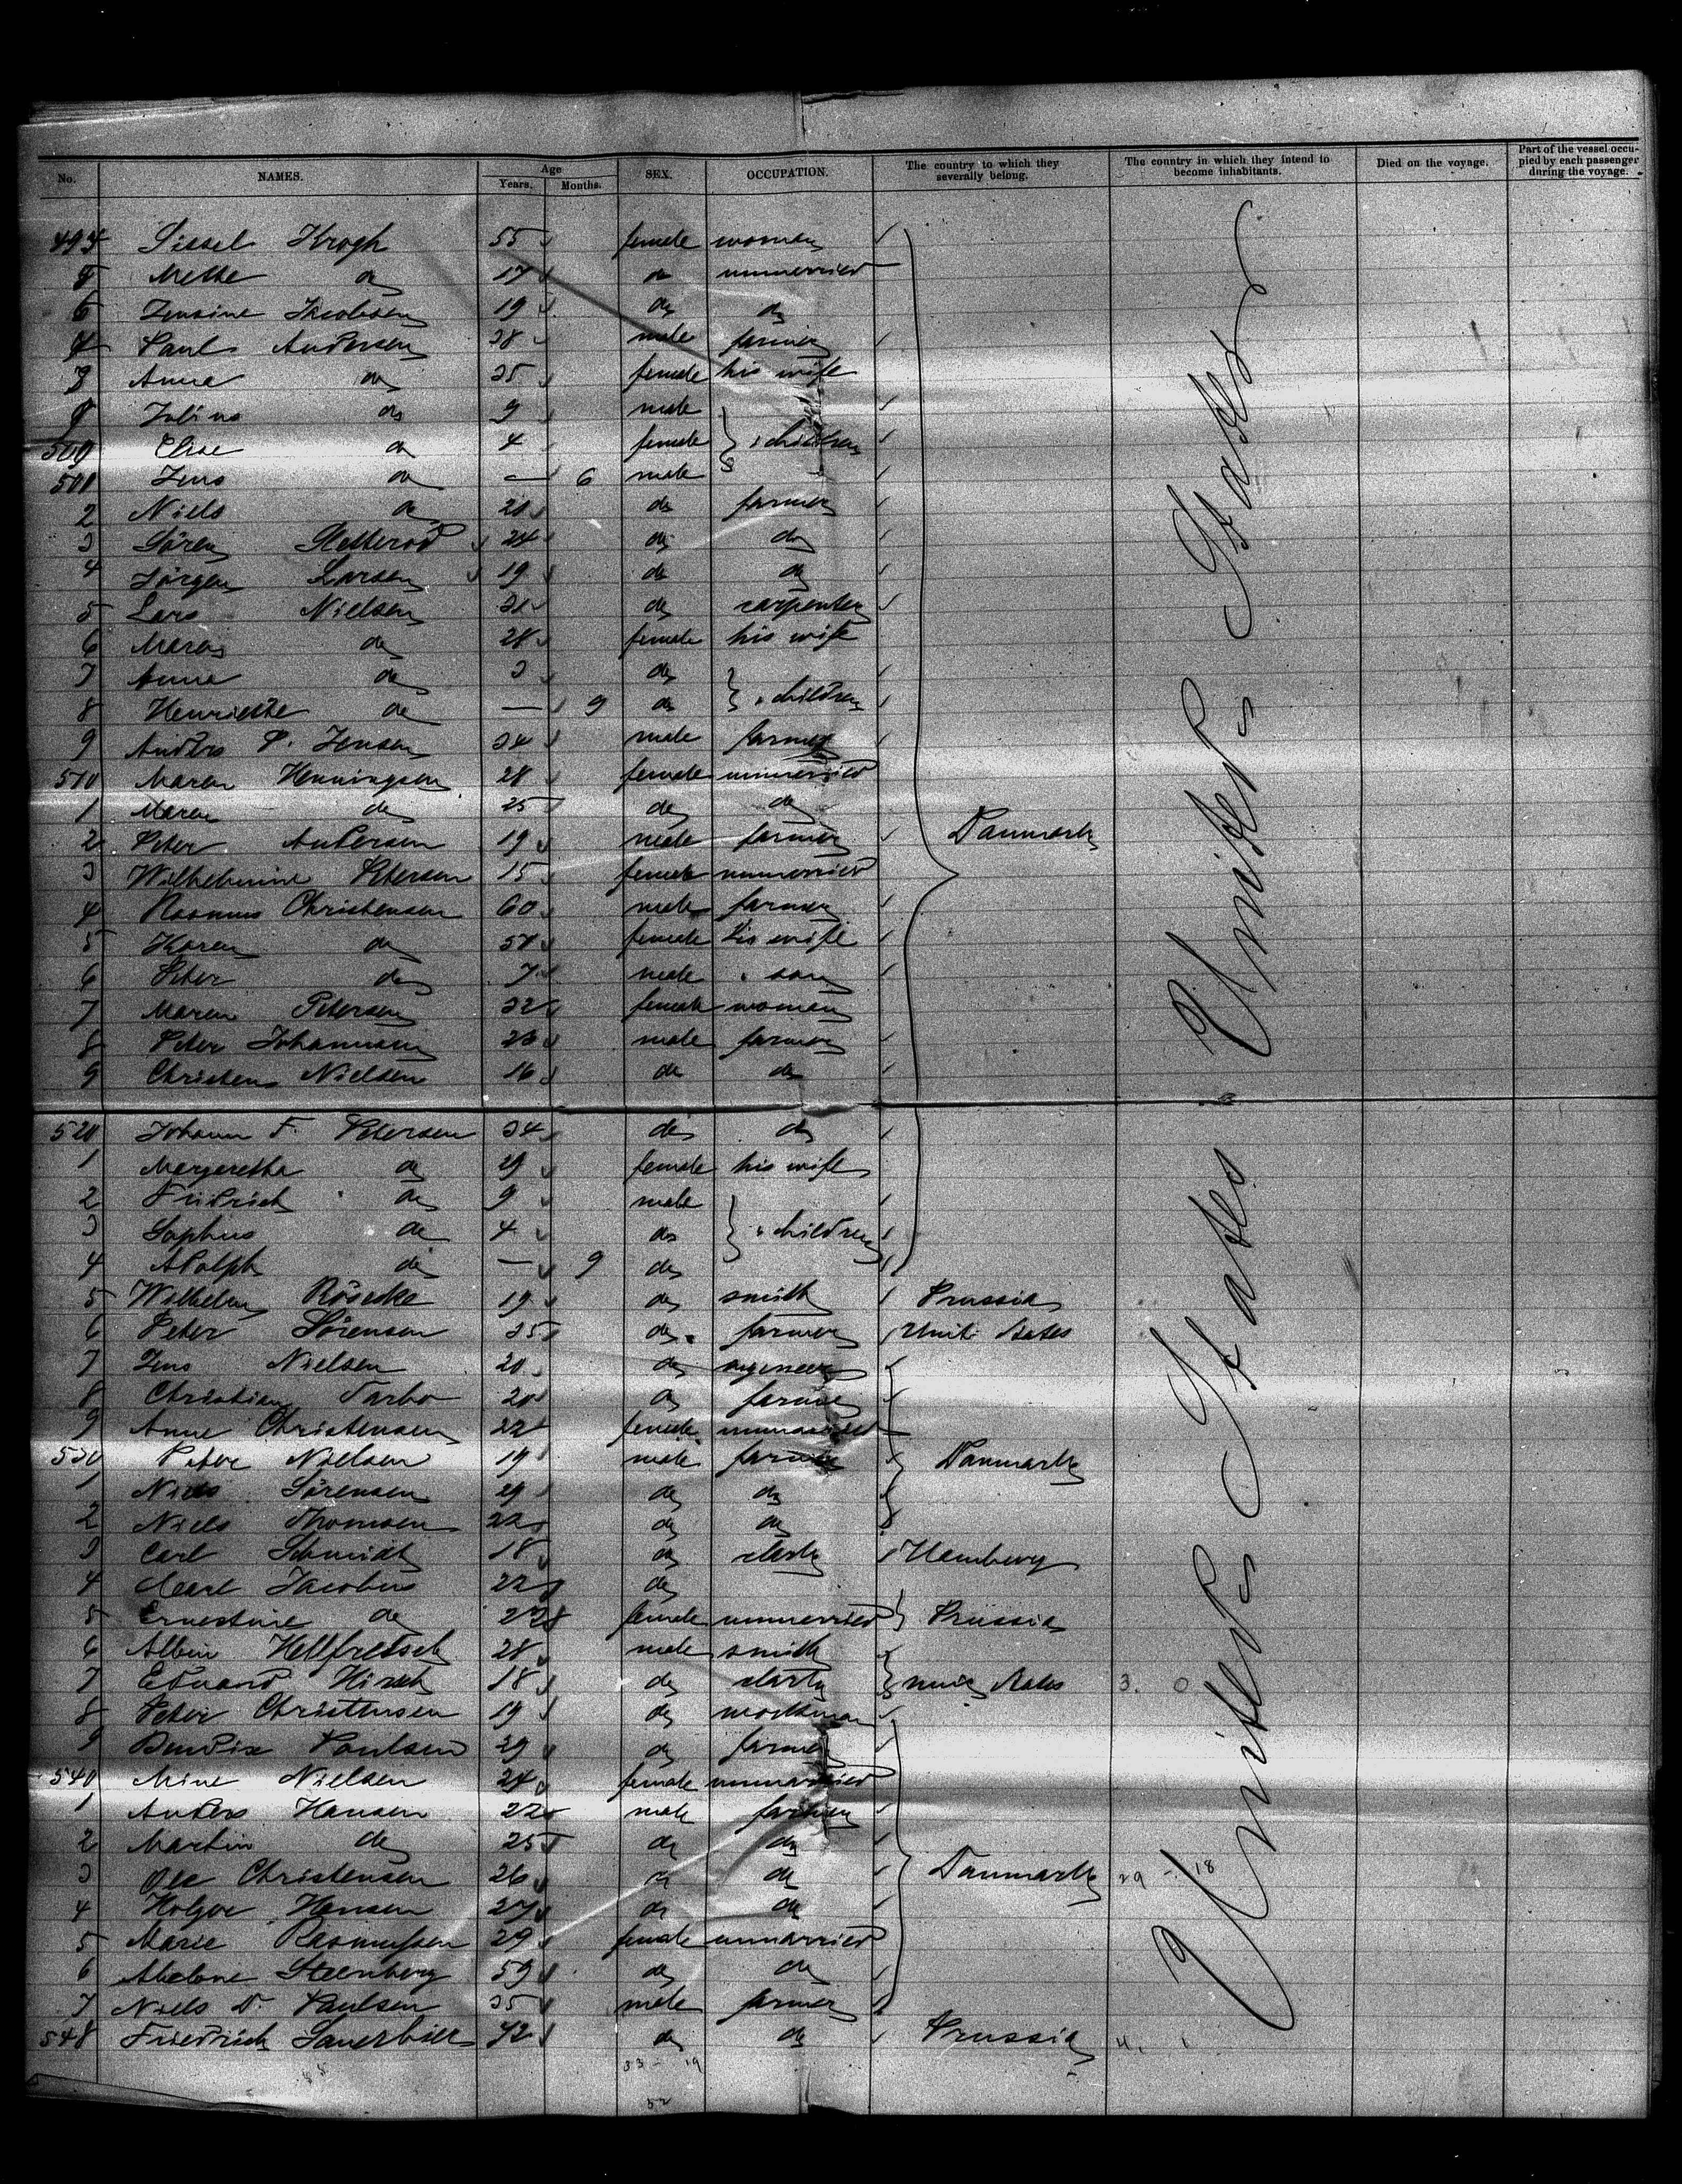 No. NAMES. Age Years. Months. SEX. OCCUPATION. The country to which they severally belong. The country in which they intend to become inhabitants. Died on the voyage. Part of the vessel occupied by each passenger during the voyage.
494 Sissel Krogh 55 female woman
5 Mette do 17 do unmerried
6 Jensine Jacobsen 19 do do
7 Paul Andersen 38 male farmer
8 Anna do 35 female his wife
9 Julius do 9 male
500 Elise do 4 female " children
501 Jens do — 6 male
2 Niels do 20 do farmer
3 Sören 24 do do
4 Jörgen Larsen 19 do do
5 Lars Nielsen 31 do carpenter
6 Maren do 28 female his wife
7 Anna do 3 do
8 Henriette do — 9 do " children
9 Anders P. Jensen 34 male farmer
510 Maren Henningsen 28 female unmerried
1 Maren do 25 do do
2 Peter Andersen 19 male farmer Danmark
3 Wilhelmine Petersen 15 female unmerried
4 Rasmus Christensen 60 male farmer
5 Karen do female his wife
6 Peter do 7 male " son
7 Maren Petersen 32 female woman
8 Peter Johannsen 23 male farmer
9 Christen Nielsen 16 do do
United States
520 Johann F. Petersen 34 do do
1 Margaretha do 29 female his wife
2 Friedrich do 9 male
3 Sophus do 4 do " children
4 Adolph do — 9 do
5 Wilhelm Röseke 19 do smith Prussia
6 Peter Sörensen 35 do farmer Unit. States
7 Jens Nielsen 20 do
8 Christian Tarbo 20 do farmer
9 Anne Christensen 22 female unmarried
530 Peter Nielsen 19 male farmer Danmark
1 Niels Sörensen 29 do do
2 Niels Thomsen 22 do do
3 Carl Schmidt 18 do clerk Hamburg
4 Jacobus 22 do
5 Ernestine do 28 female unmerried Prussia
6 Albin Hellfretsch 28 male smith
7 Eduard Hirsch 18 do clerk States 3. 0
8 Peter Christensen 19 do workman
9 Bendix Paulsen 29 do farmer
540 Mine Nielsen 24 female unmarried
1 Anders Hansen 22 male farmer
2 Martin do 25 do do
3 Ole Christensen 26 do do Danmark 29 - 18
4 Holger Hansen 27 do do
5 Marie Rasmussen 29 female unmarried
6 Abelone Steenberg 59 do do
7 Niels D. Paulsen 35 male farmer
548 Friedrich Sauerbier 42 do do Prussia 4. 1
United States
33 - 19
52